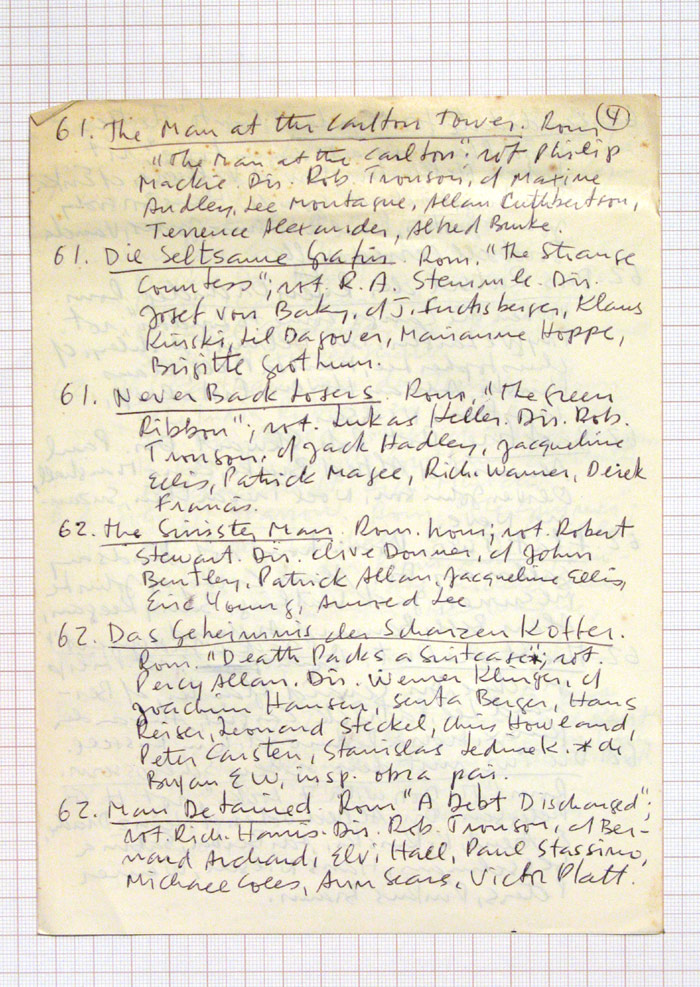 ④
61. The Man at the Carlton Tower. Rom.
"The Man at the Carlton"; rot Philip
Mackie. Dir. Rob. Tronson, cf Maxine
Audley, Lee Montague, Allan Cuthbertson,
Terrence Alexander, Alfred Burke.
61. Die Seltsame Grafin. Rom. "The Strange
Countess"; rot. R.A. Stemmle. Dir.
Josef von Baky, cf J. Fuchsberger, Klaus
Kinski, Lil Dagover, Marianne Hoppe,
Brigitte Grothum.
61. Never Back Losers. Rom. "The Green
Ribbon"; rot. Lukas Heller. Dir. Rob.
Tronson, cf Jack Hadley, Jacqueline
Ellis, Patrick Magee, Rich. Warner, Derek
Francis.
62. The Sinister Man. Rom. hom; rot. Robert
Stewart. Dir. Clive Donner, cf John
Bentley, Patrick Allan, Jacqueline Ellis,
Eric Young, Amred Lee
62. Das Geheimnis der Scharzen Koffer.
Rom. "Death Packs a Suitcase"*; rot.
Percy Allan. Dir. Werner Klinger, cf
Joachim Hansen, Senta Berger, Hans
Reiser, Leonard Steckel, Chris Howland,
Peter Carsten, Stanislas Ledinek. *de
Bryan E W, insp. obra pai.
62. Man Detained. Rom "A Debt Discharged";
rot. Rich. Harris. Dir. Rob. Tronson, cf Ber-
nard Archard, Elvi Hale, Paul Stassino,
Michael Coles, Ann Sears, Victor Platt.